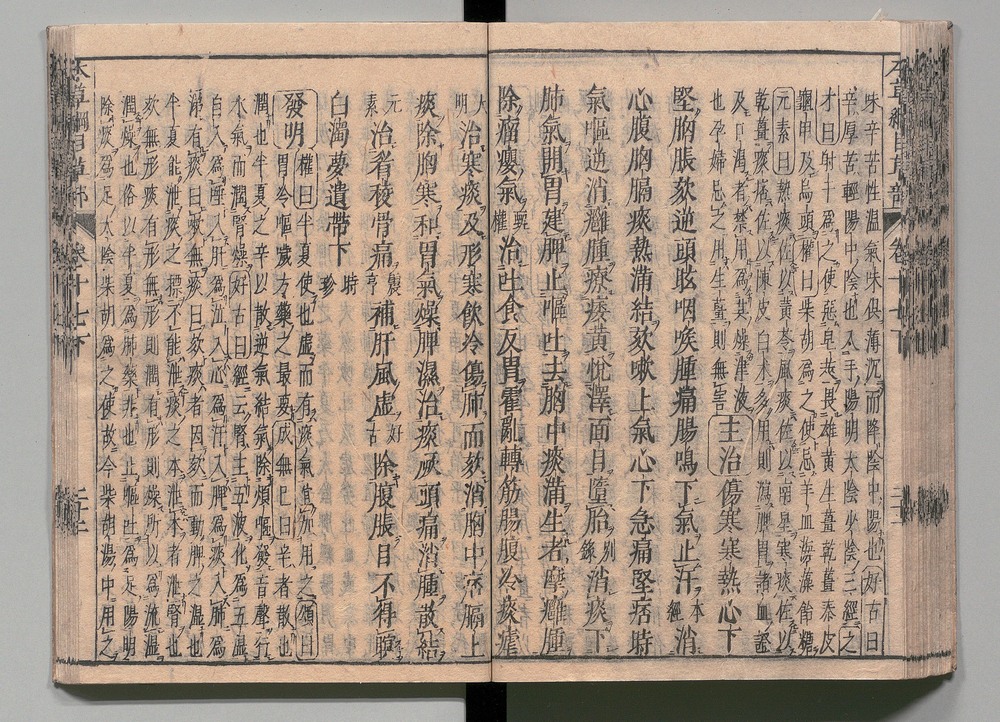 味辛苦性温氣味俱薄沉而降陰中陽也好古曰
辛厚苦輕陽中陰也入手陽明太陰少陰三經之
才曰射干爲之使惡皂莢畏雄黃生薑乾薑秦皮
龜甲反烏頭權曰柴胡爲之使忌羊血海藻飴糖
元素曰熱痰佐以黃芩風痰佐以南星寒痰佐以
乾薑痰痞佐以陳皮白朮多用則瀉脾胃諸血證
及口渴者禁用爲其燥津液
也孕婦忌之用生薑則無害主治傷寒寒熱心下
堅胸脹欬逆頭眩咽喉腫痛腸鳴下氣止汗本經消
心腹胸膈痰熱滿結欬嗽上氣心下急痛堅痞時
氣嘔逆消癰腫療痿黃悅澤面目墮胎别錄消痰下
肺氣開胃建脾止嘔吐去胸中痰滿生者摩癰腫
除瘤癭氣甄權治吐食反胃霍亂轉筋腸腹冷痰瘧
大明治寒痰及形寒飲冷傷肺而欬消胸中痞膈上
痰除胸寒和胃氣燥脾濕治痰厥頭痛消腫散結
元素治眉稜骨痛震亨補肝風虚好古除腹脹目不得瞑
白濁夢遺帶下時珍
發明權曰半夏使也虛而有痰氣宜加用之頌曰
胃冷嘔噦方藥之最要成無已曰辛者散也
潤也半夏之辛以散逆氣結氣除煩嘔發音聲行
水氣而潤腎燥好古曰經云腎主五液化爲五濕
自入爲唾入肝爲泣入心爲汗入脾爲痰入肺爲
涕有痰曰嗽無痰曰欬痰者因欬而動脾之濕也
半夏能泄痰之標不能泄痰之本泄本者泄腎也
欬無形痰有形無形則潤有形則燥所以爲流濕
潤燥也俗以半夏爲肺藥非也止嘔吐爲足陽明
除痰爲足太陰柴胡爲之使故今柴胡湯中用之